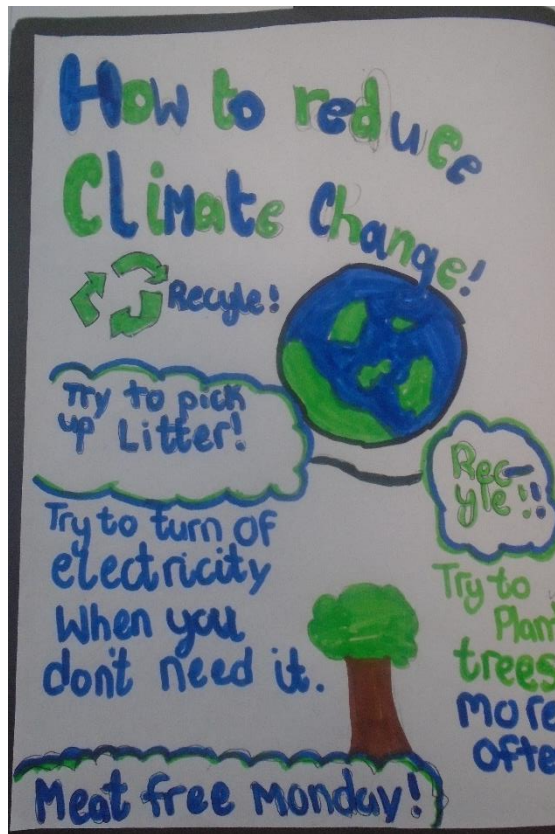 How to reduce
Climate Change!
Recyle!
Try to pick
up Litter!
Rec-
yle!!
Try to turn of
electricity
When you
don't need it.
Try to
Plan
trees
More
Ofte
Meat free Monday!